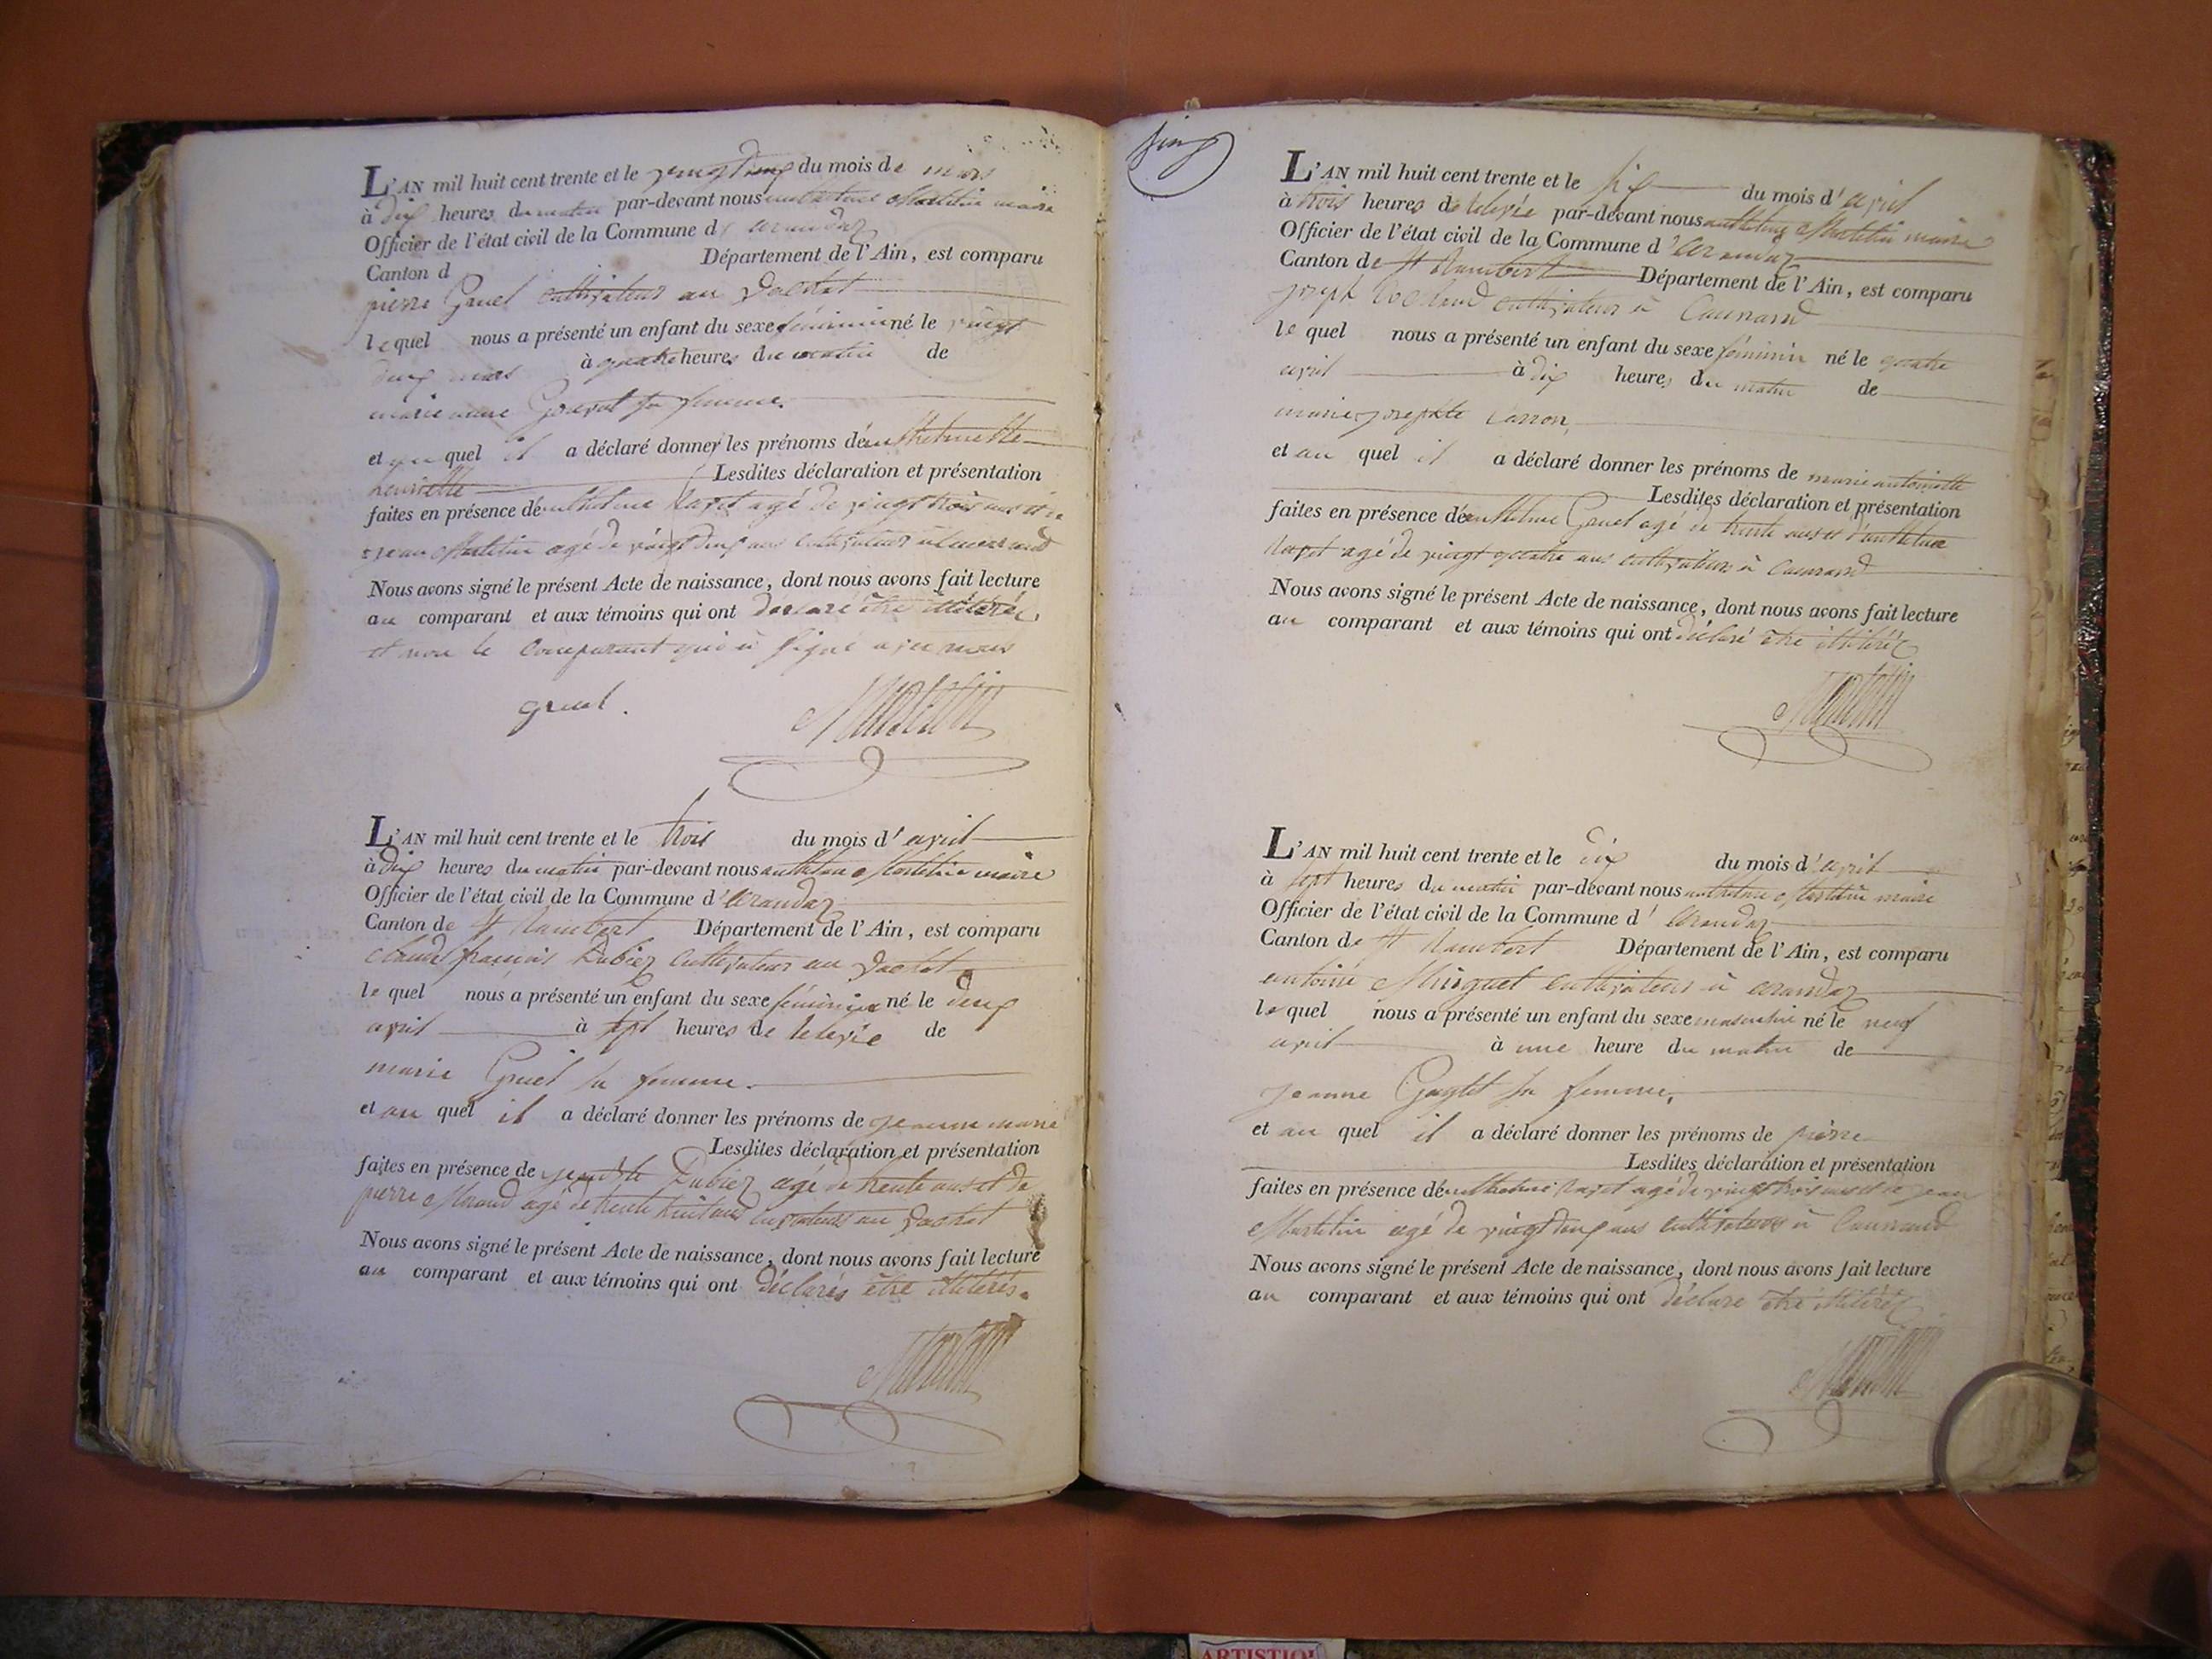 L'AN mil huit cent trente et le vingt deux du mois de mars
à dix heures du matin par-devant nous anthelme Martelin maire
Officier de l'état civil de la Commune d' arandaz
Canton d Département de l'Ain, est comparu
pierre Gruel cultivateur au
le quel nous a présenté un enfant du sexe féminin né le vingt
deux mars à quatre heures du matin de
marie anne sa femme.
et au quel il a déclaré donner les prénoms d'anthelmette
henriette Lesdites déclaration et présentation
faites en présence d'anthelme agé de vingt trois ans et de
jean Martelin agé de vingt deux ans cultivateurs
Nous avons signé le présent Acte de naissance, dont nous avons fait lecture
au comparant et aux témoins qui ont déclaré être illitérés
et non le comparant qui a signé avec nous
gruel. Martelin
L'AN mil huit cent trente et le trois du mois d'avril
à dix heures du matin par-devant nous anthelme Martelin maire
Officier de l'état civil de la Commune d'arandaz
Canton de St Rambert Département de l'Ain, est comparu
claude françois Dubiez cultivateur au
le quel nous a présenté un enfant du sexe féminin né le deux
avril à sept heures de relevée de
marie Gruel sa femme.
et au quel il a déclaré donner les prénoms de jeanne marie
Lesdites déclaration et présentation
faites en présence de Dubiez agé de trente ans et de
pierre agé de trente huit ans cultivateurs au
Nous avons signé le présent Acte de naissance, dont nous avons fait lecture
au comparant et aux témoins qui ont déclarés être illitérés.
Martelin
L'AN mil huit cent trente et le six du mois d'avril
à trois heures de relevée par-devant nous anthelme Martelin maire
Officier de l'état civil de la Commune d'arandaz
Canton de St Rambert Département de l'Ain, est comparu
joseph cultivateur à
le quel nous a présenté un enfant du sexe féminin né le quatre
avril à dix heures du matin de
marie josephte Carron,
et au quel il a déclaré donner les prénoms de marie antoinette
Lesdites déclaration et présentation
faites en présence d'anthelme Gruel agé de trente ans et d'anthelme
agé de vingt quatre ans cultivateurs à
Nous avons signé le présent Acte de naissance, dont nous avons fait lecture
au comparant et aux témoins qui ont déclaré être illitérés
Martelin
L'AN mil huit cent trente et le dix du mois d'avril
à sept heures du matin par-devant nous anthelme Martelin maire
Officier de l'état civil de la Commune d' arandaz
Canton de St Rambert Département de l'Ain, est comparu
antoine cultivateur à arandaz
le quel nous a présenté un enfant du sexe masculin né le neuf
avril à une heure du matin de
jeanne sa femme,
et au quel il a déclaré donner les prénoms de pierre
Lesdites déclaration et présentation
faites en présence d'anthelme agé de vingt trois ans et de jean
Martelin agé de vingt deux ans cultivateurs à
Nous avons signé le présent Acte de naissance, dont nous avons fait lecture
au comparant et aux témoins qui ont déclaré être illitérés
Martelin